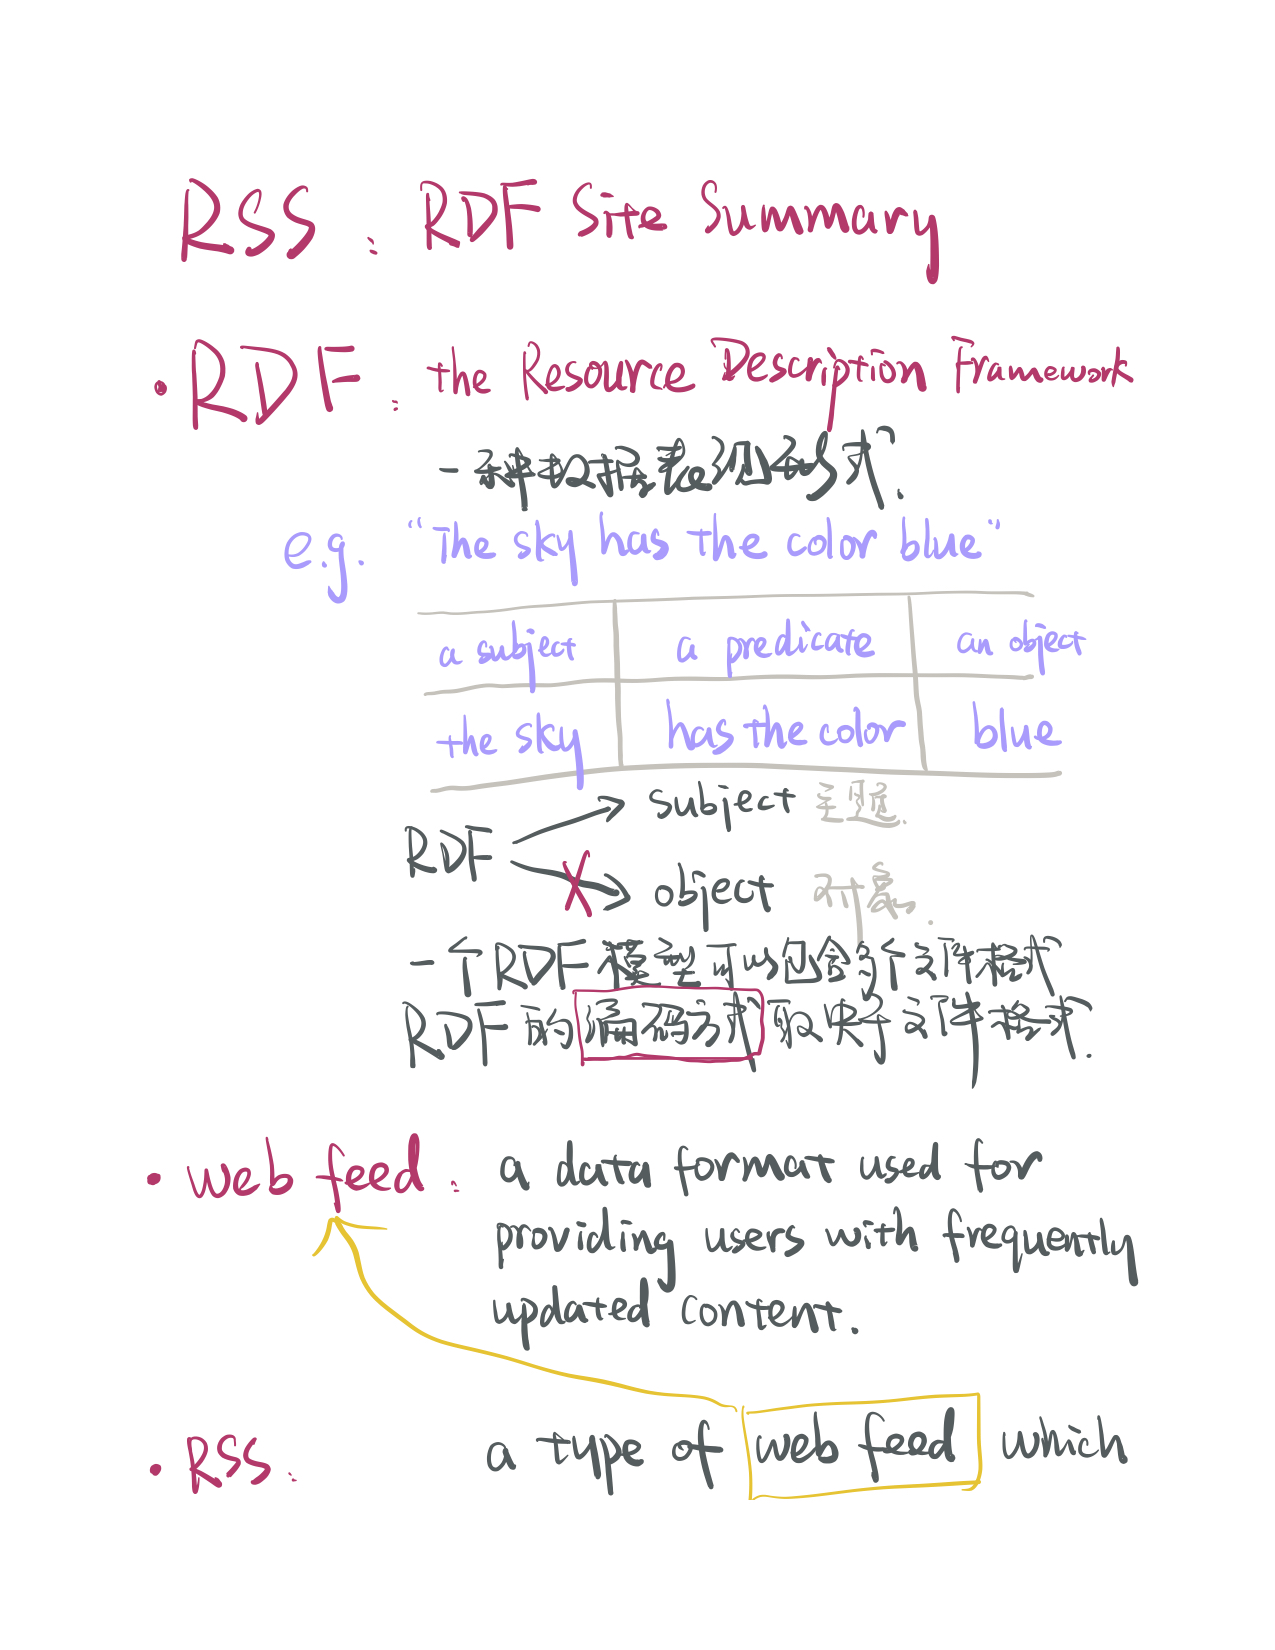 RSS: RDF Site Summary
• RDF: the Resource Description Framework
一种数据表现形式.
e.g. "The sky has the color blue"
a subject a predicate an object
the sky has the color blue
subject 主题.
RDF
X object 对象.
一个RDF模型可以包含多个文件格式
RDF的编码方式取决于文件格式.
• web feed: a data format used for
providing users with frequently
updated content.
• RSS: a type of web feed which